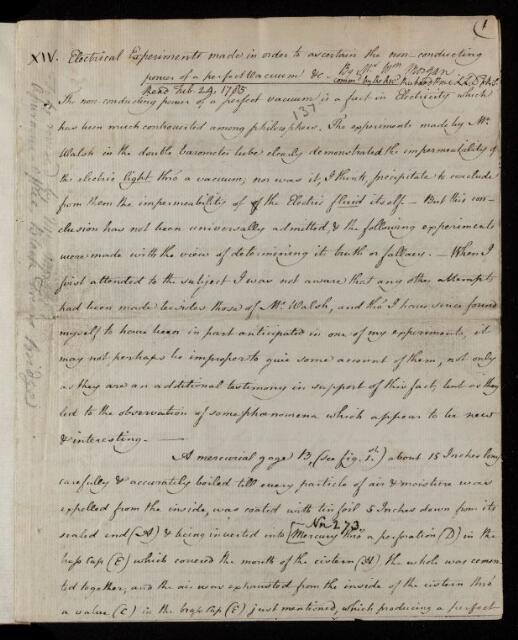 (1
XIV. Electrical Experiments made in order to ascertain the non-conducting
power of a perfect Vacuum &c - By Mr. Wm. Morgan
comm. by the Rev. Richard Price L.L.D. F.R.S.
Read Feb. 24, 1785
137
The non-conducting power of a perfect vacuum is a fact in Electricity which
has been much controverted among philosophers. The experiments made by Mr.
Walsh in the double barometer tube clearly demonstrated the impermeability of
the electric light thro' a vacuum; nor was it, I think, precipitate to conclude
from them the impermeability of the Electric fluid itself - But this con-
clusion has not been universally admitted & the following experiments
were made with the view of determining it truth or fallacy. - When I
first attended to the subject I was not aware that any other attempts
had been made besides those of Mr. Walsh, and tho' I have since found
myself to have been in part anticipated in one of my experiments, it
may not perhaps be improper to give some account of them, not only
as they are an additional testimony in support of this fact, but as they
led to the observation of some phænomena which appear to be new
& interesting. -
A mercurial gage B, (see fig. 1st.) about 15 Inches long
carefully & accurately boiled till every particle of air & moisture was
expelled from the inside, was coated with tin foil 5 Inches down from its
No. 273
sealed end (A) & being inverted into [Mercury thro' a perforation (D) in the
brass cap (E) which covered the mouth of the cistern (H), the whole was cemen
ted together, and the air was exhausted from the inside of the cistern thro'
a valve (C) in the brass cap (E) just mentioned, which producing a perfect